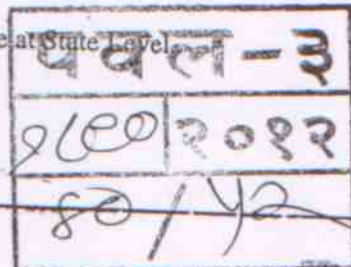 e at State Level
पवल - ३
२०१२
४०/५२